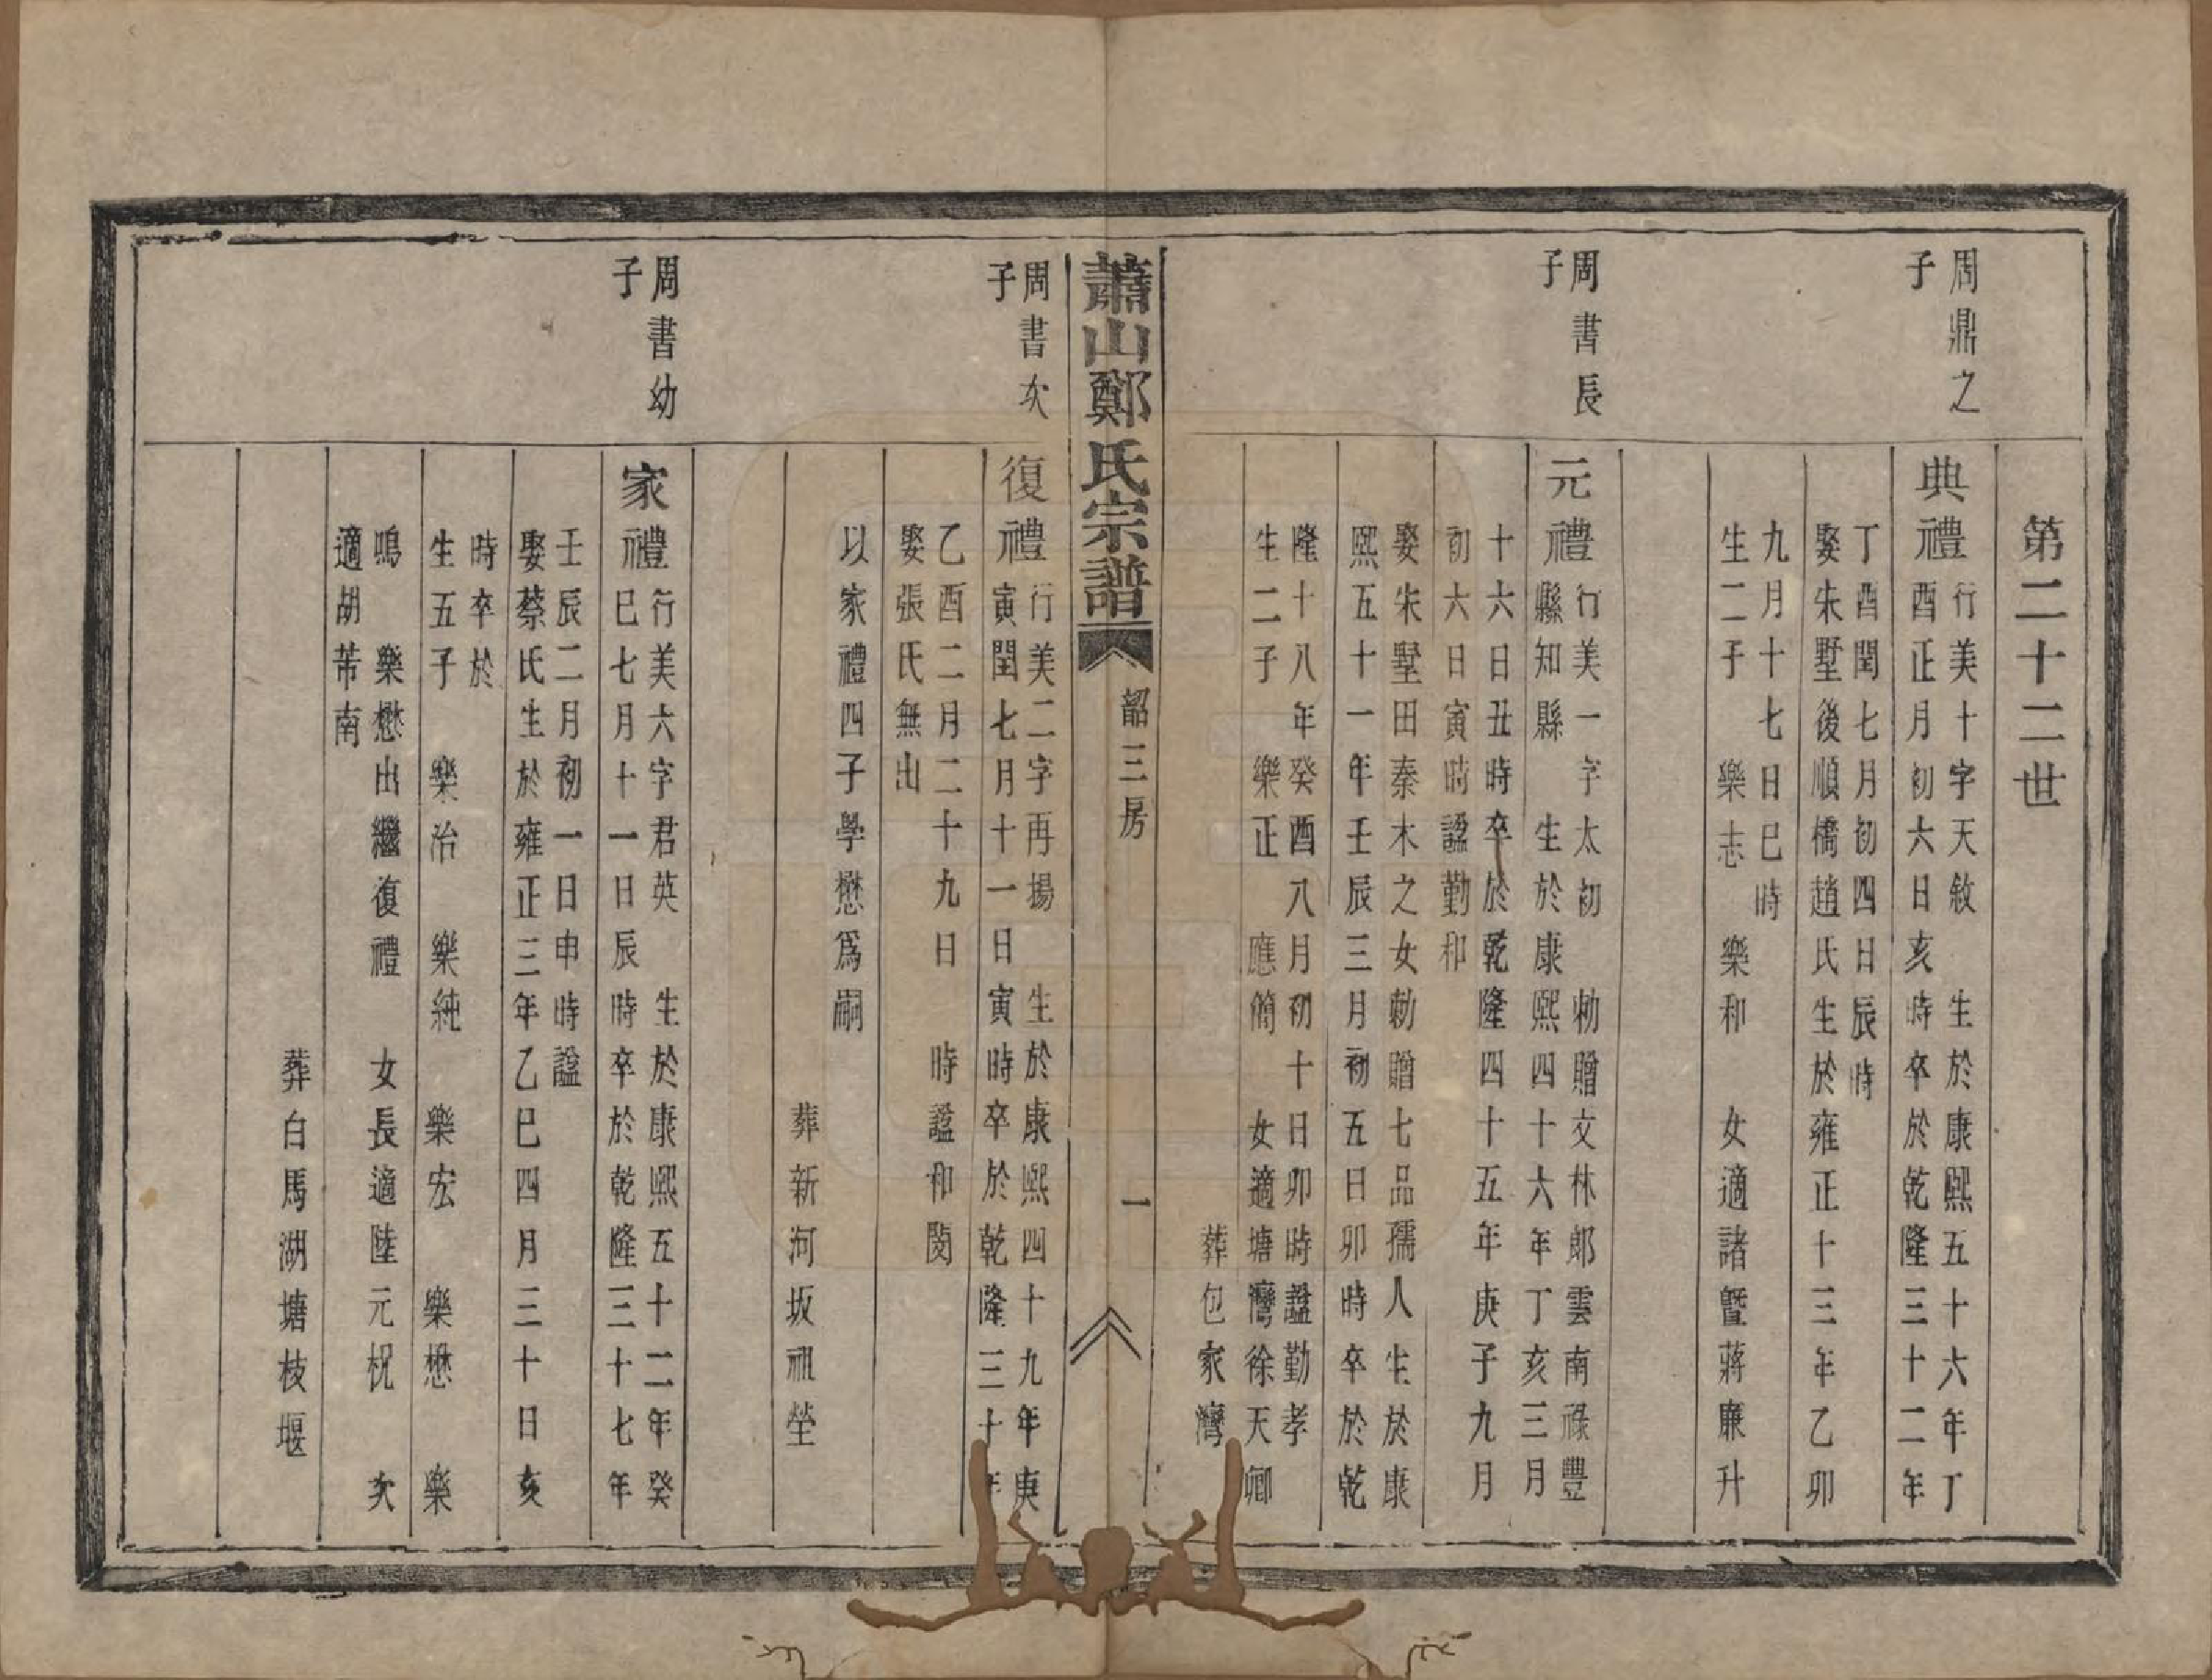 第二十二世
周鼎之
子
典禮
行美十字天敘　生於康熙五十六年丁
酉正月初六日亥時卒於乾隆三十二年
丁酉閏七月初四日辰時
娶朱墅後順橋趙氏生於雍正十三年乙卯
九月十七日巳時
生二子　樂志　樂和　女適諸暨蔣廉升
周書長
子
元禮
行美一字太初　勅贈文林郎雲南祿豐
縣知縣　生於康熙四十六年丁亥三月
十六日丑時卒於乾隆四十五年庚子九月
初六日寅時謚勤和
娶朱墅田秦木之女勅贈七品孺人生於康
熙五十一年壬辰三月初五日卯時卒於乾
隆十八年癸酉八月初十日卯時謚勤孝
生二子　樂正　應簡　女適塘灣徐天卿
葬包家灣
蕭山鄭氏宗譜
韶三房
一
周書次
子
復禮
行美二字再揚　生於康熙四十九年庚
寅閏七月十一日寅時卒於乾隆三十年
乙酉二月二十九日　時謚和閔
娶張氏無出
以家禮四子學懋爲嗣
葬新河坂祖塋
周書幼
子
家禮
行美六字君英　生於康熙五十二年癸
巳七月十一日辰時卒於乾隆三十七年
壬辰二月初一日申時謚
娶蔡氏生於雍正三年乙巳四月三十日亥
時卒於
生五子　樂治　樂純　樂宏　樂懋　樂
鳴　樂懋出繼復禮　女長適陸元祝　次
適胡芾南
葬白馬湖塘枝堰